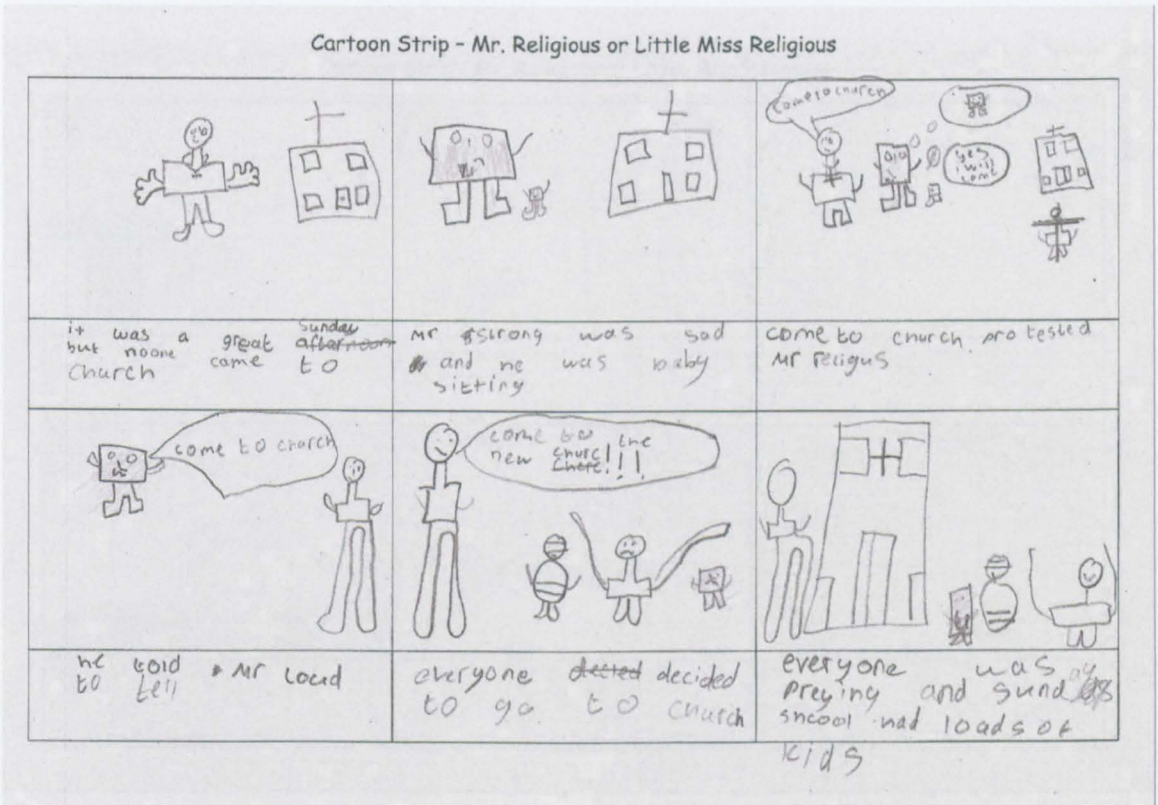 Cartoon Strip - Mr. Religious or Little Miss Religious
come to church
yes
i will
it was a great Sunday afternoon
but noone
church came to
Mr strong was sad
and he was baby
sitting
come to church protested
Mr religus
come to church
come to the
new churc!!!
he told Mr Loud
to tell
everyone decided
to go to church
everyone was
preying and sunday
shcool had loads of
kids